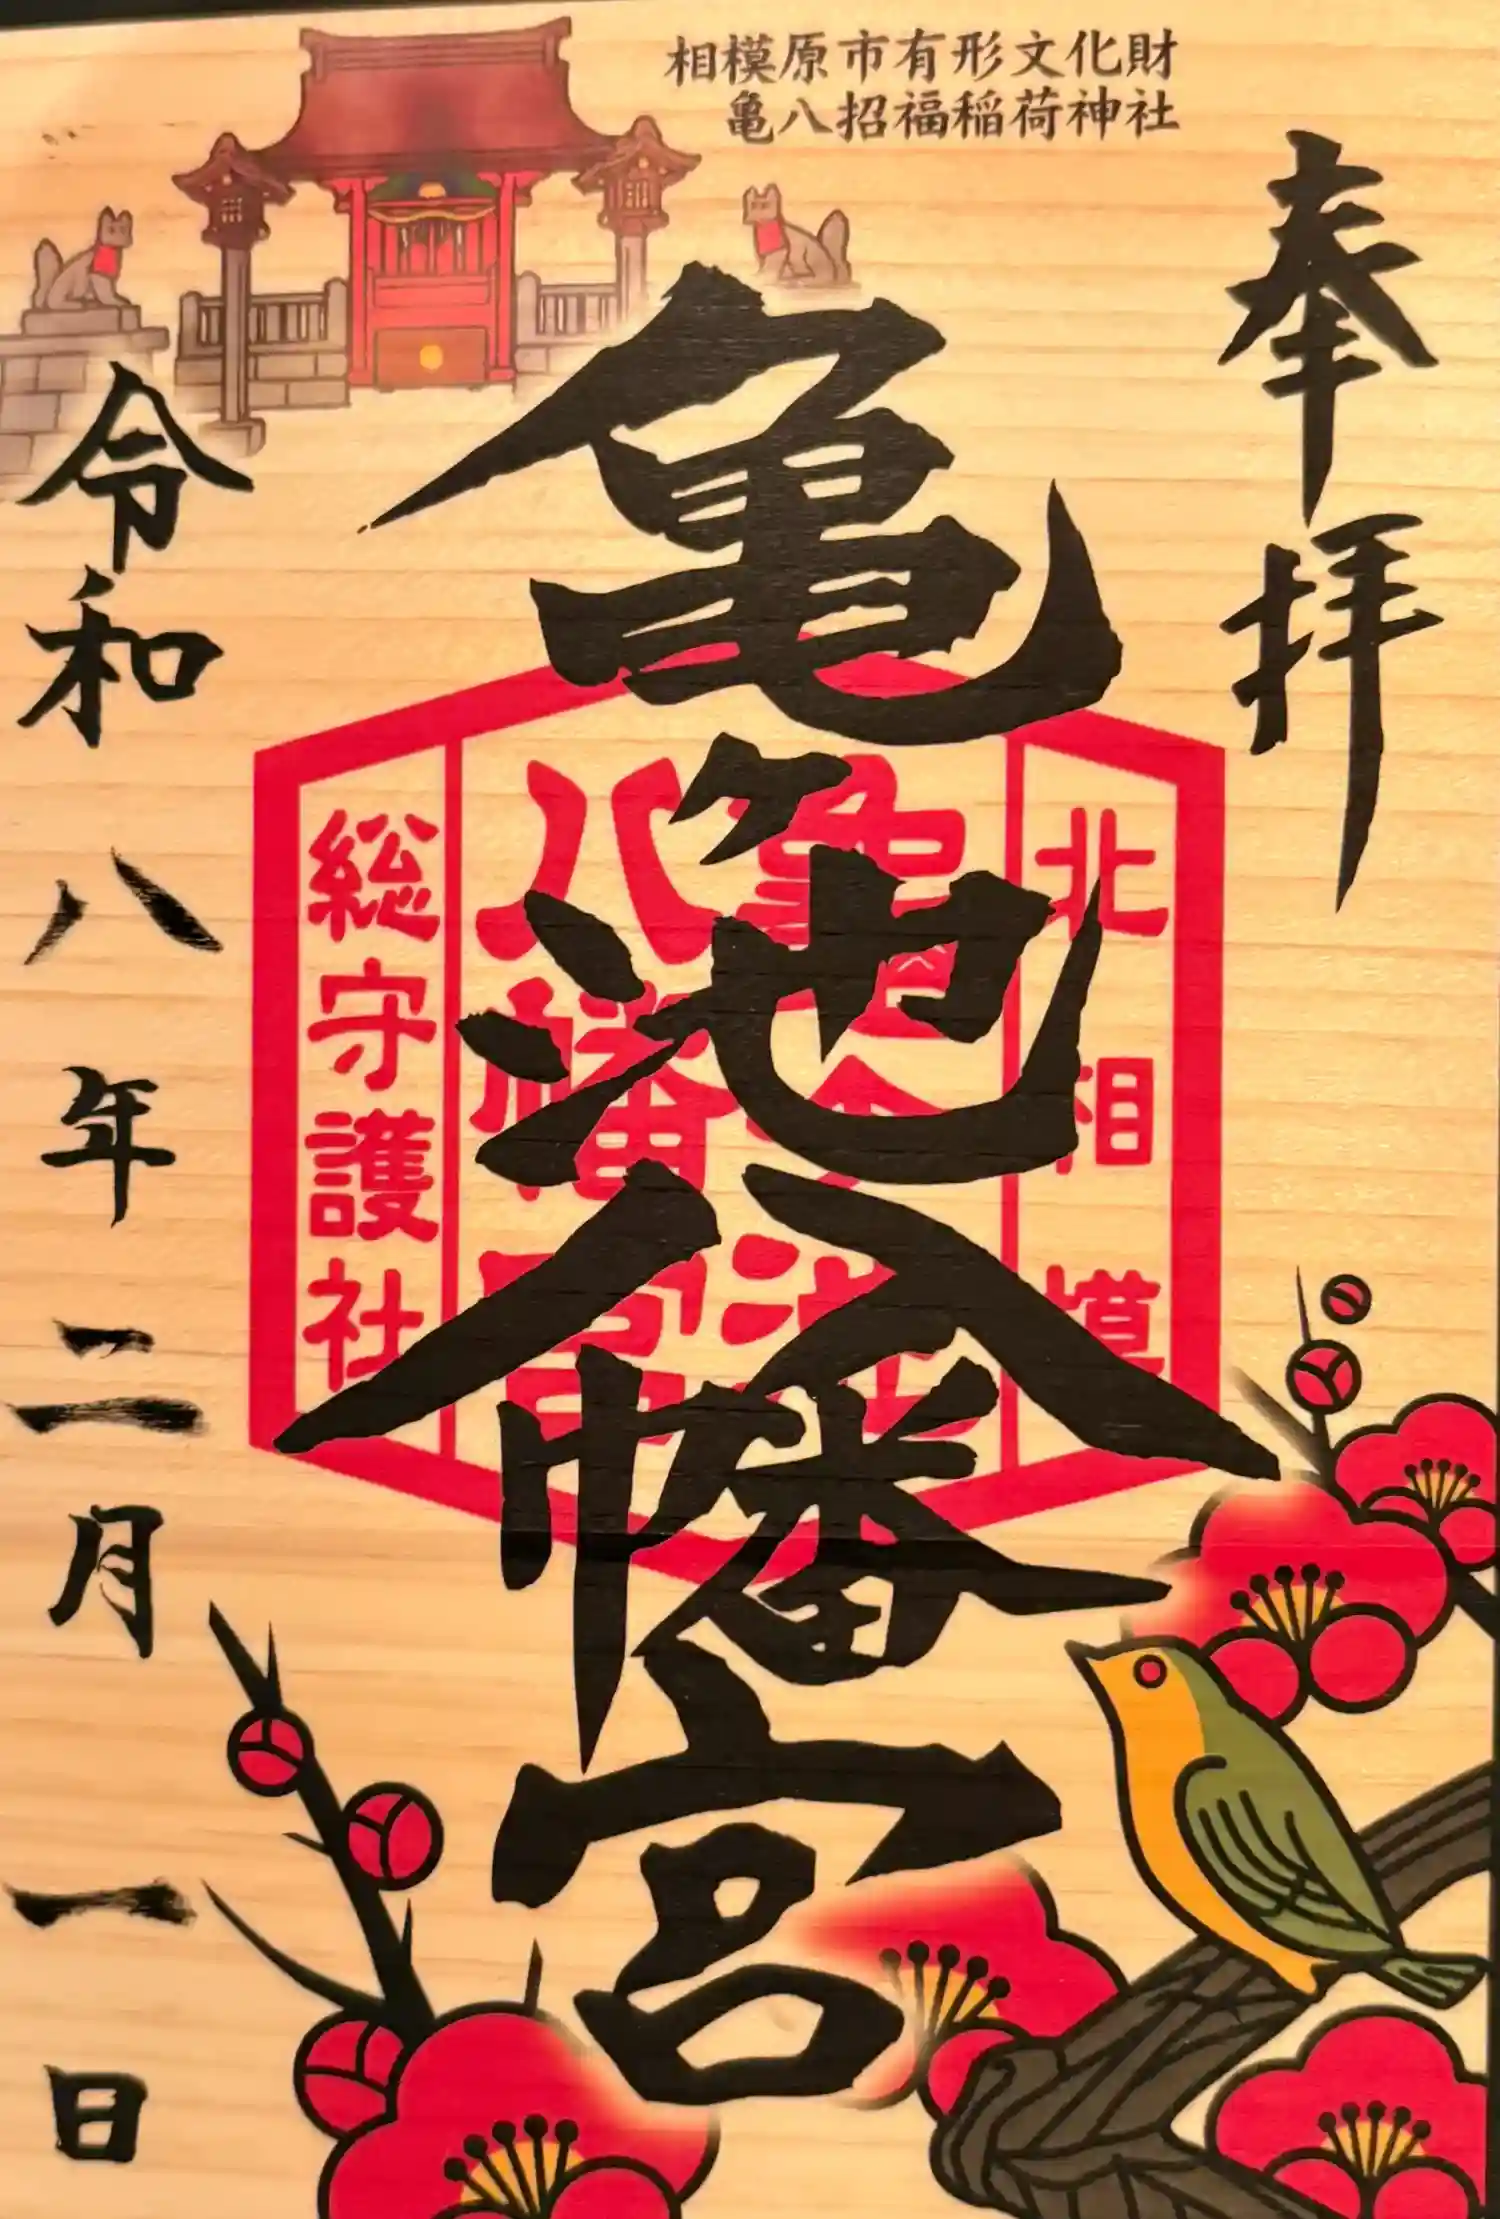 相模原市有形文化財
亀八招福稲荷神社
奉拝
亀ヶ池八幡宮
北相模
亀ヶ池
八幡宮
総守護社
令和八年二月一日